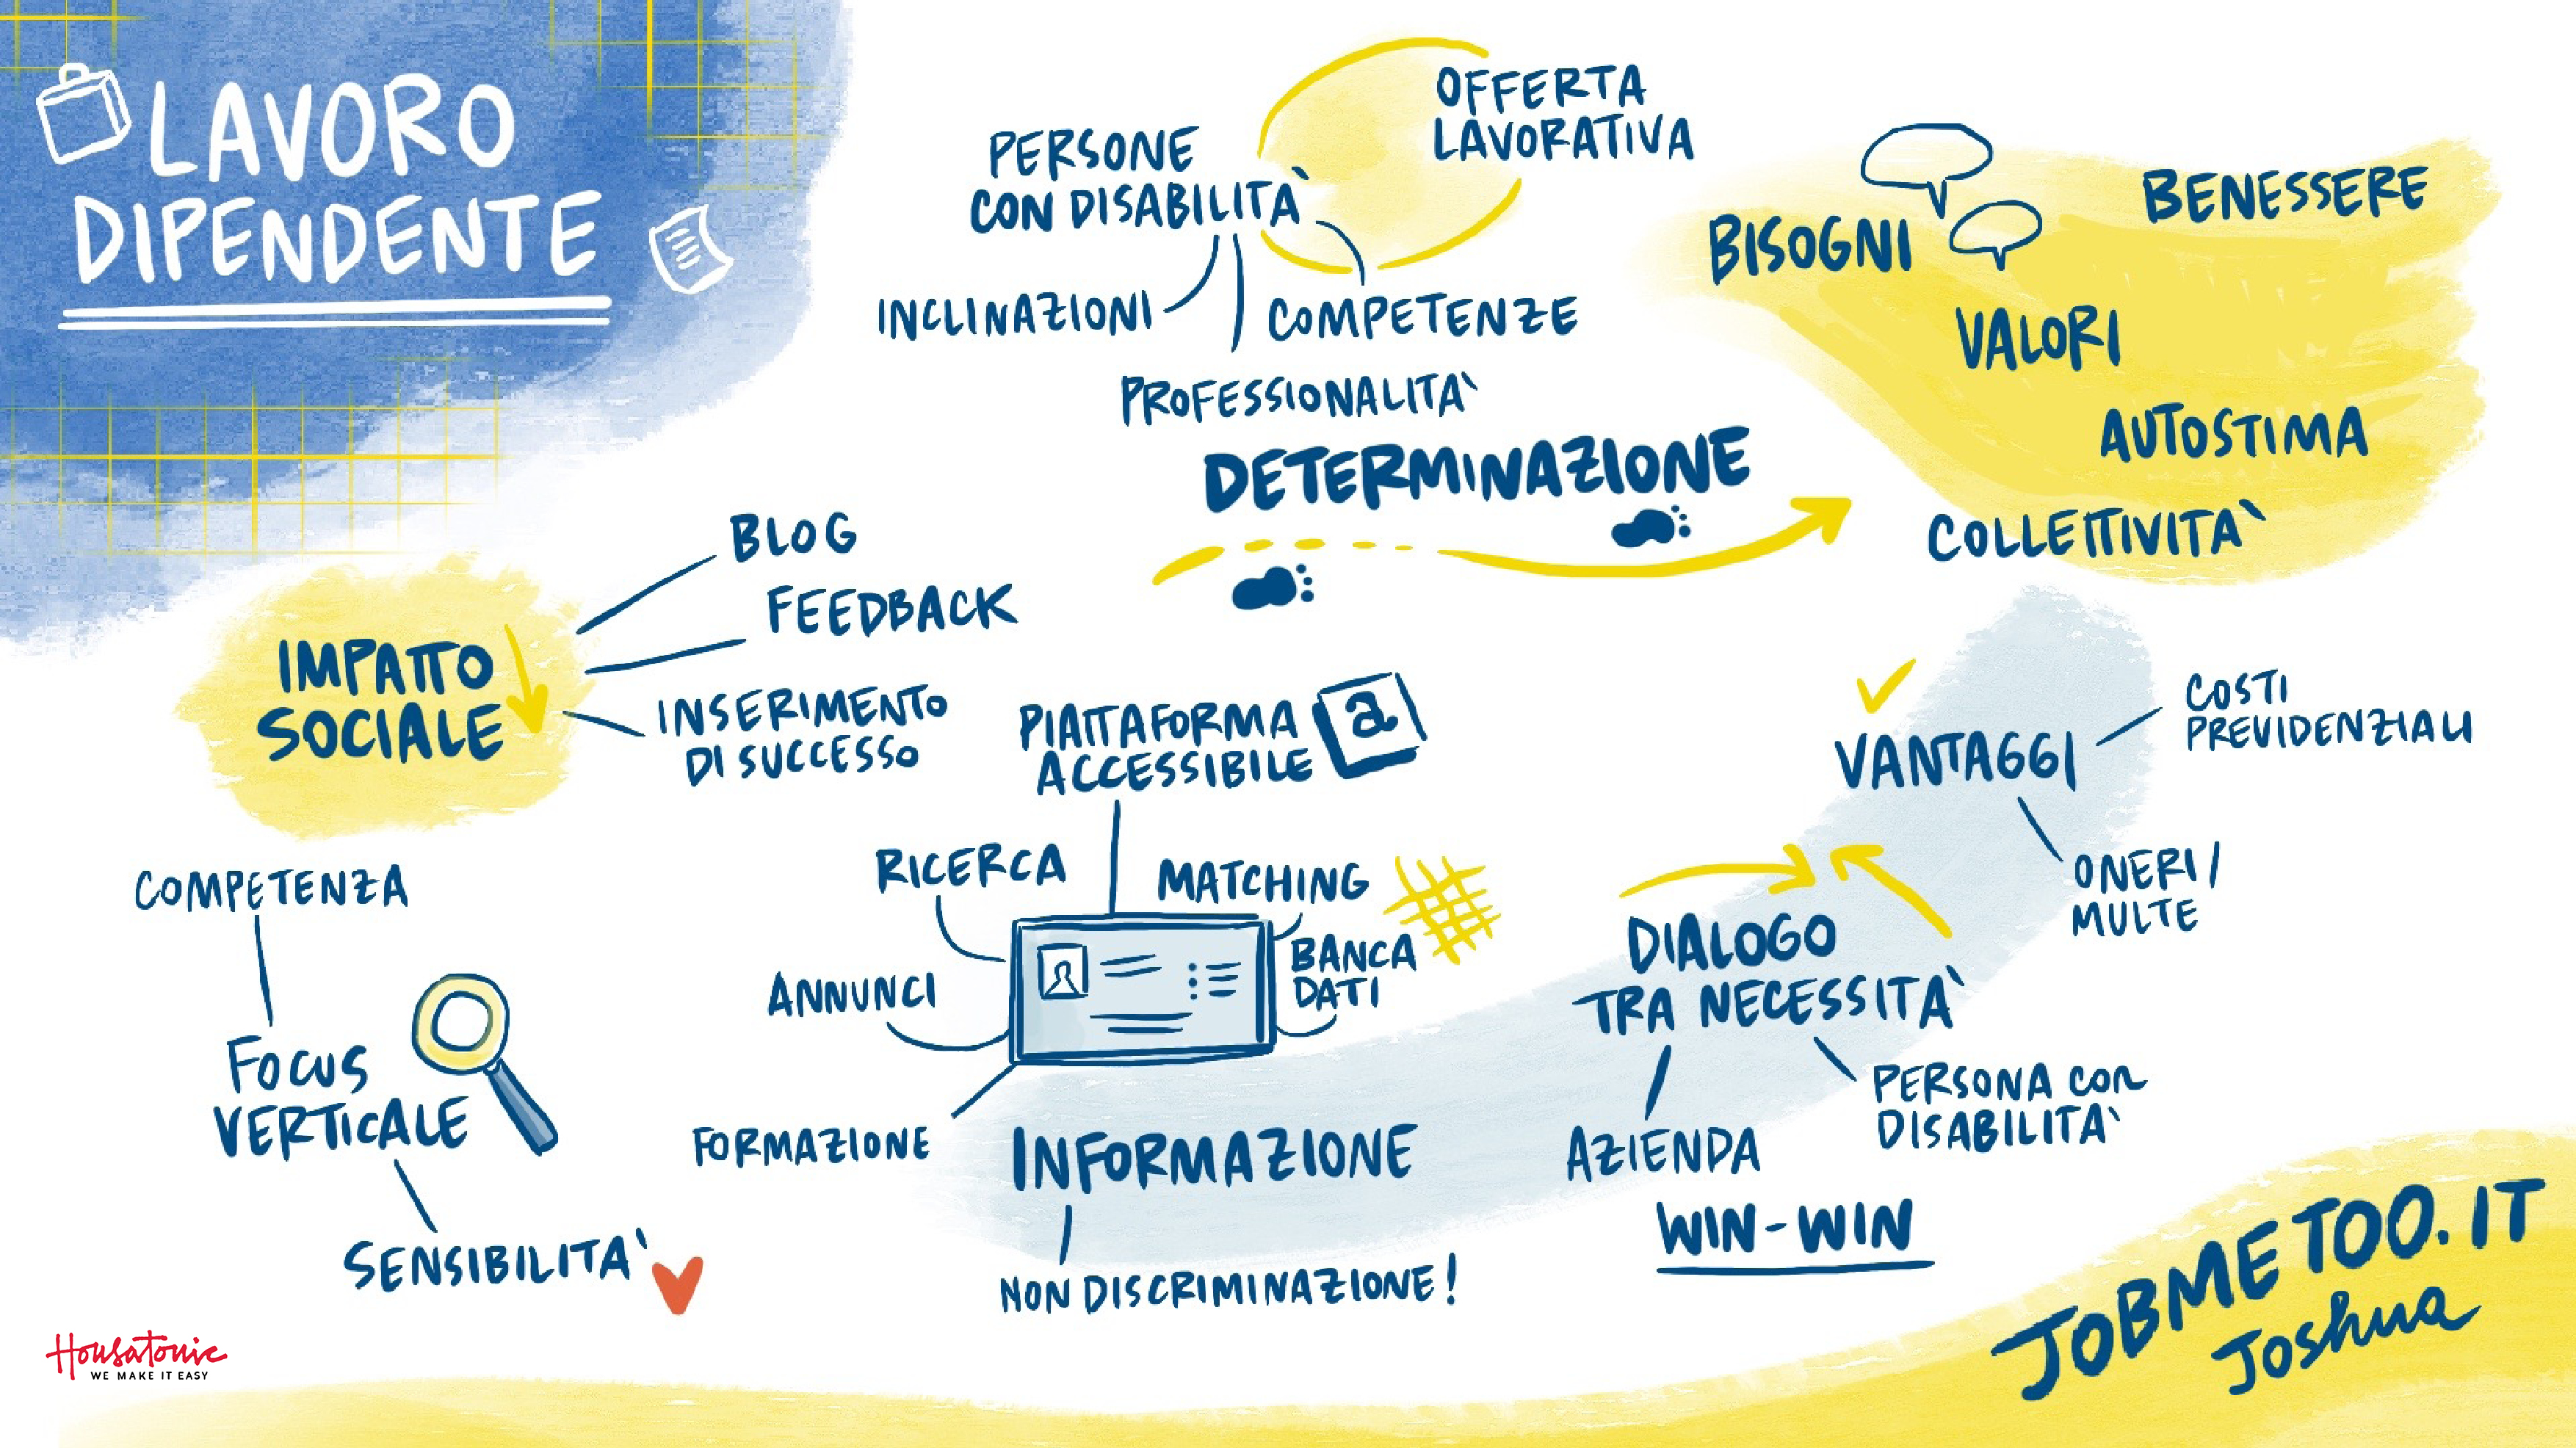 LAVORO
DIPENDENTE
PERSONE
CON DISABILITÀ
OFFERTA
LAVORATIVA
INCLINAZIONI
COMPETENZE
PROFESSIONALITÀ
DETERMINAZIONE
BISOGNI
BENESSERE
VALORI
AUTOSTIMA
COLLETTIVITÀ
IMPATTO
SOCIALE
BLOG
FEEDBACK
INSERIMENTO
DI SUCCESSO
COMPETENZA
FOCUS
VERTICALE
SENSIBILITÀ
PIATTAFORMA
ACCESSIBILE
a
RICERCA
MATCHING
ANNUNCI
BANCA
DATI
FORMAZIONE
INFORMAZIONE
NON DISCRIMINAZIONE!
VANTAGGI
COSTI
PREVIDENZIALI
ONERI/
MULTE
DIALOGO
TRA NECESSITÀ
AZIENDA
PERSONA CON
DISABILITÀ
WIN-WIN
JOBMETOO.IT
Joshua
Housatonic
WE MAKE IT EASY